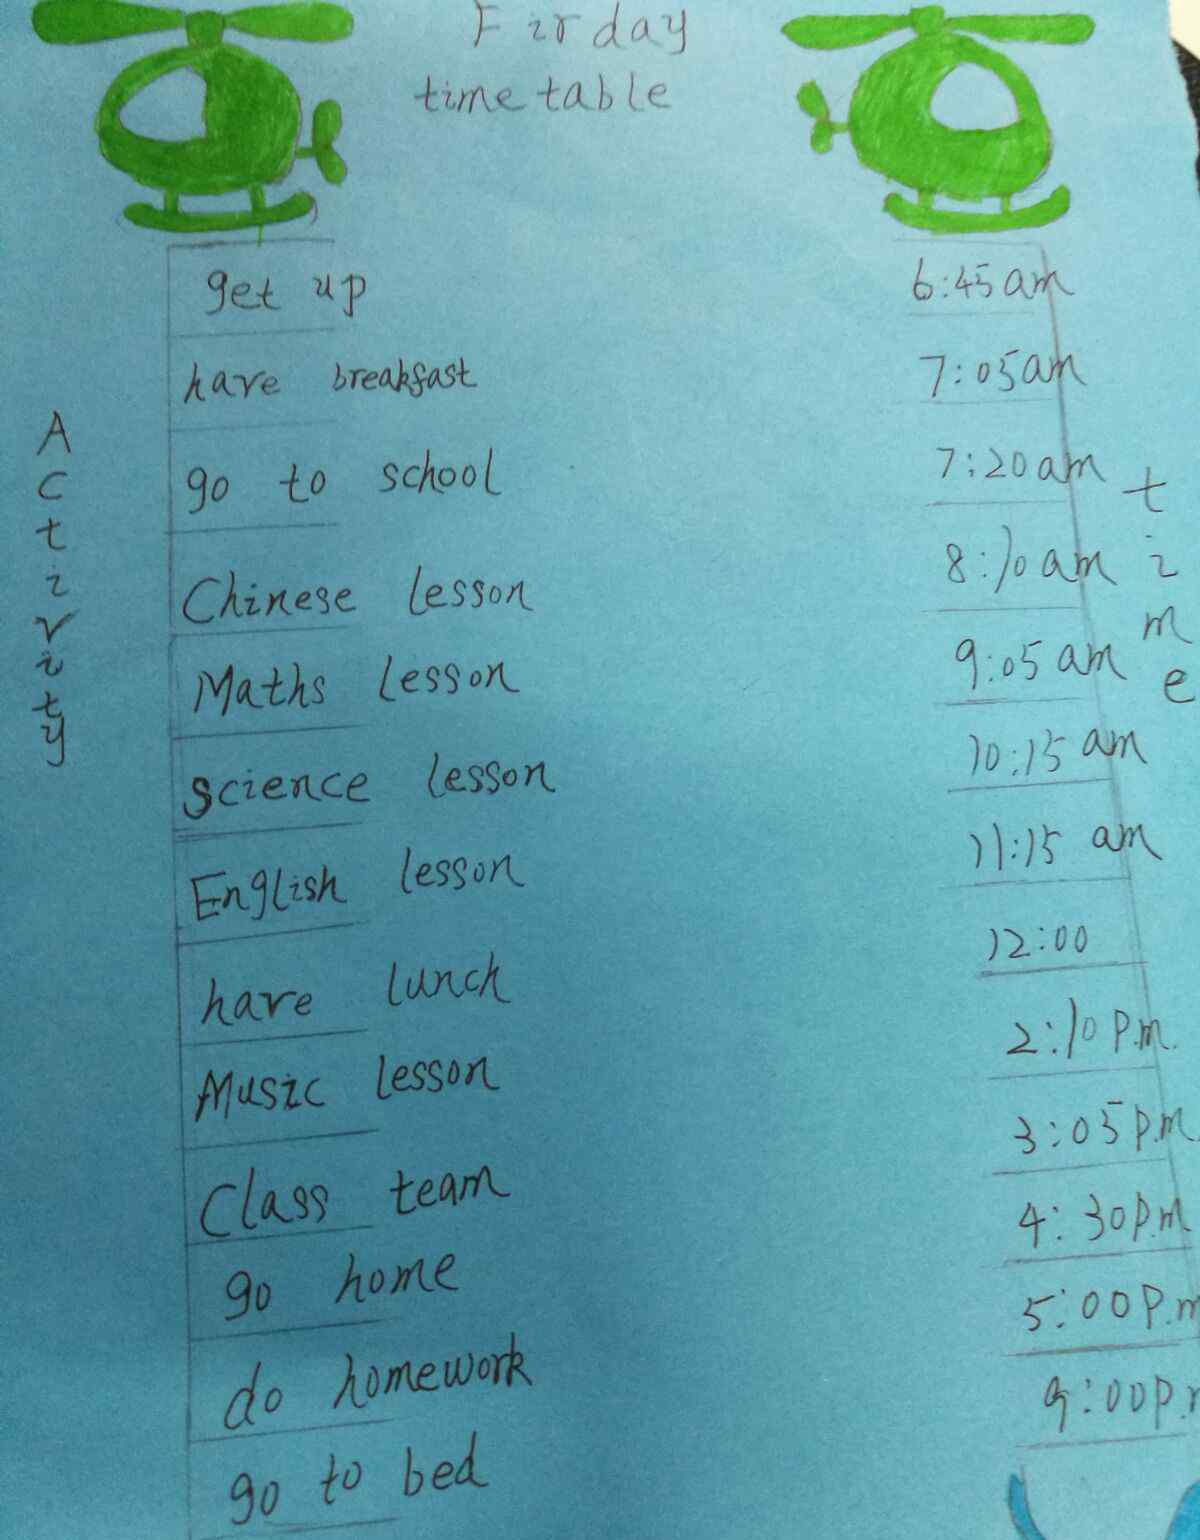 Firday
time table
Activity
time
get up 6:45am
have breakfast 7:05am
go to school 7:20am
Chinese lesson 8:10am
Maths lesson 9:05 am
science lesson 10:15 am
English lesson 11:15 am
have lunch 12:00
Music lesson 2:10 P.m.
Class team 3:05 P.m
go home 4:30P.m
do homework 5:00P.m
go to bed 9:00P.m